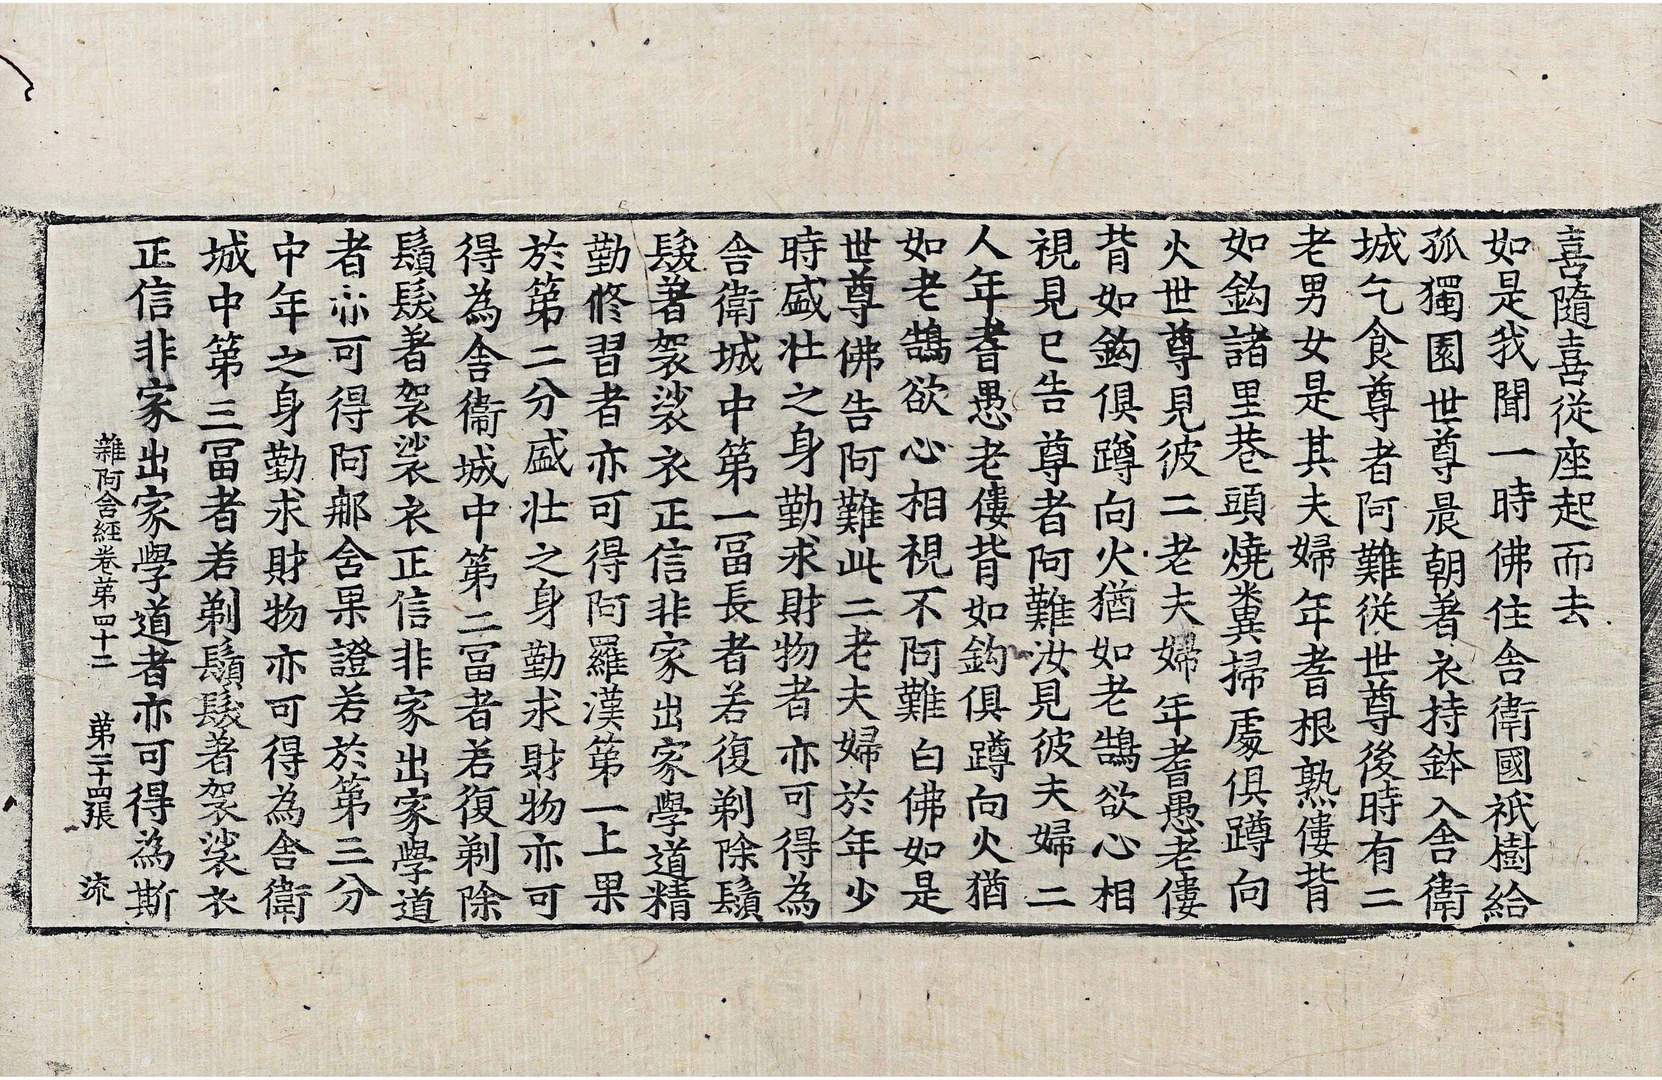 喜隨喜從座起而去
如是我聞一時佛住舍衛國祇樹給
孤獨園世尊晨朝著衣持鉢入舍衛
城乞食尊者阿難從世尊後時有二
老男女是其夫婦年耆根熟僂背
如鉤諸里巷頭燒糞掃處俱蹲向
火世尊見彼二老夫婦年耆愚老僂
背如鉤俱蹲向火猶如老鵠欲心相
視見已告尊者阿難汝見彼夫婦二
人年耆愚老僂背如鉤俱蹲向火猶
如老鵠欲心相視不阿難白佛如是
世尊佛告阿難此二老夫婦於年少
時盛壯之身勤求財物者亦可得為
舍衛城中第一冨長者若復剃除鬚
髮著袈裟衣正信非家出家學道精
勤修習者亦可得阿羅漢第一上果
於第二分盛壯之身勤求財物亦可
得為舍衛城中第二冨者若復剃除
鬚髮著袈裟衣正信非家出家學道
者亦可得阿那舍果證若於第三分
中年之身勤求財物亦可得為舍衛
城中第三冨者若剃鬚髮著袈裟衣
正信非家出家學道者亦可得為斯
雜阿含經卷第四十二 第二十四張 流